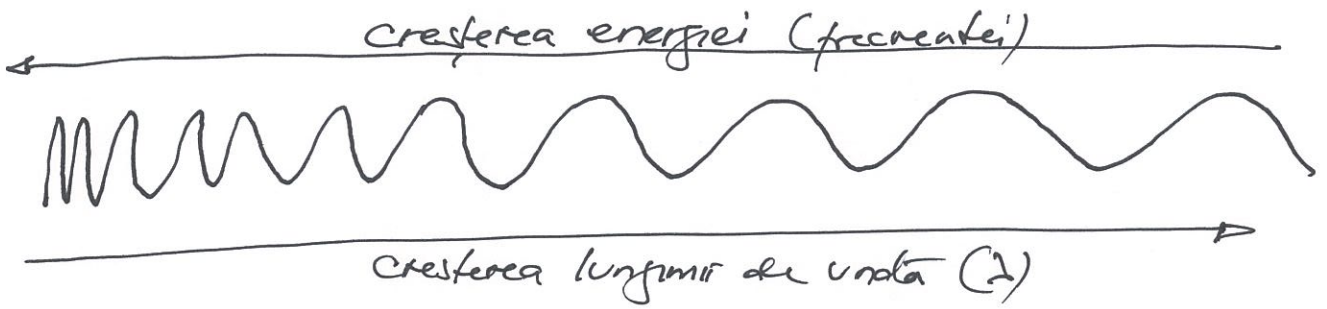 creșterea energiei (frecventei)
creșterea lungimii de undă (λ)